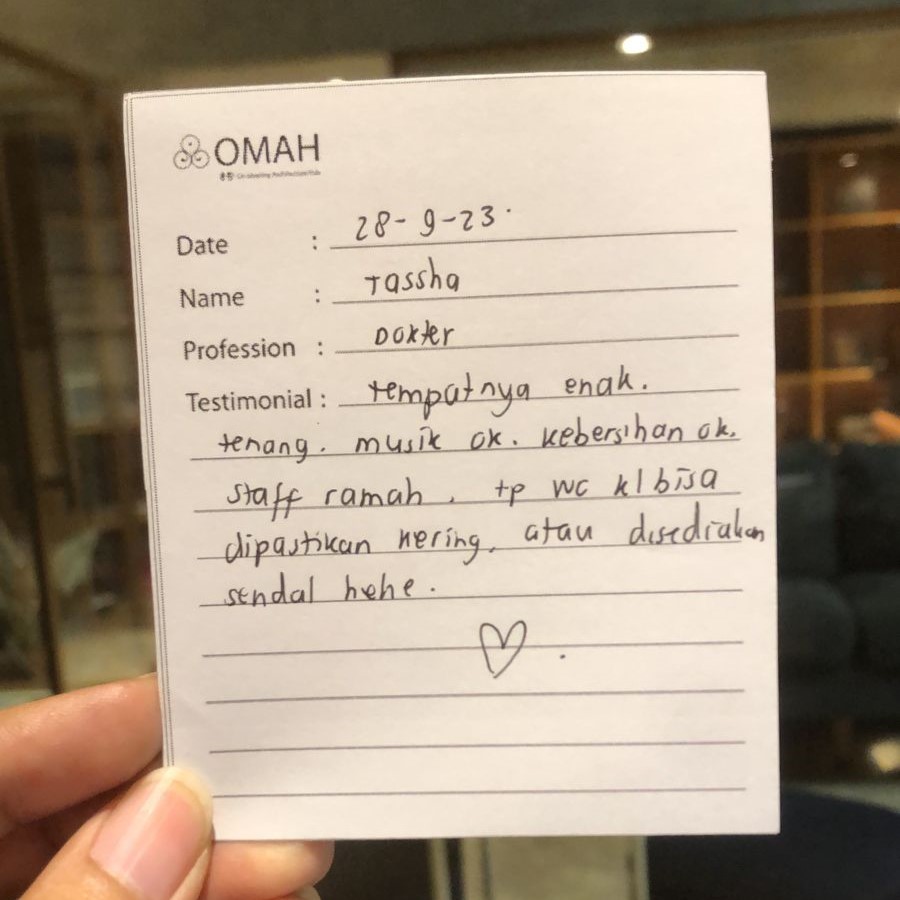 OMAH
Date : 28-9-23.
Name : Tassha
Profession : Dokter
Testimonial : tempatnya enak.
tenang. musik ok. kebersihan ok.
staff ramah. tp wc kl bisa
dipastikan kering, atau disediakan
sendal hehe.